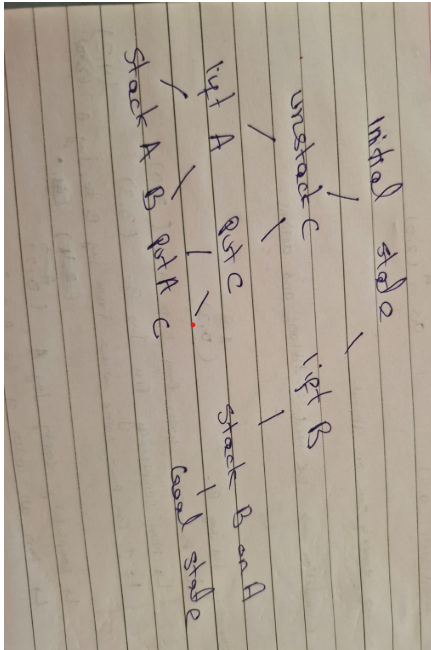 Initial state
unstack C lift B
lift A Put C Stack B on A
Stack A B Put A C Goal state